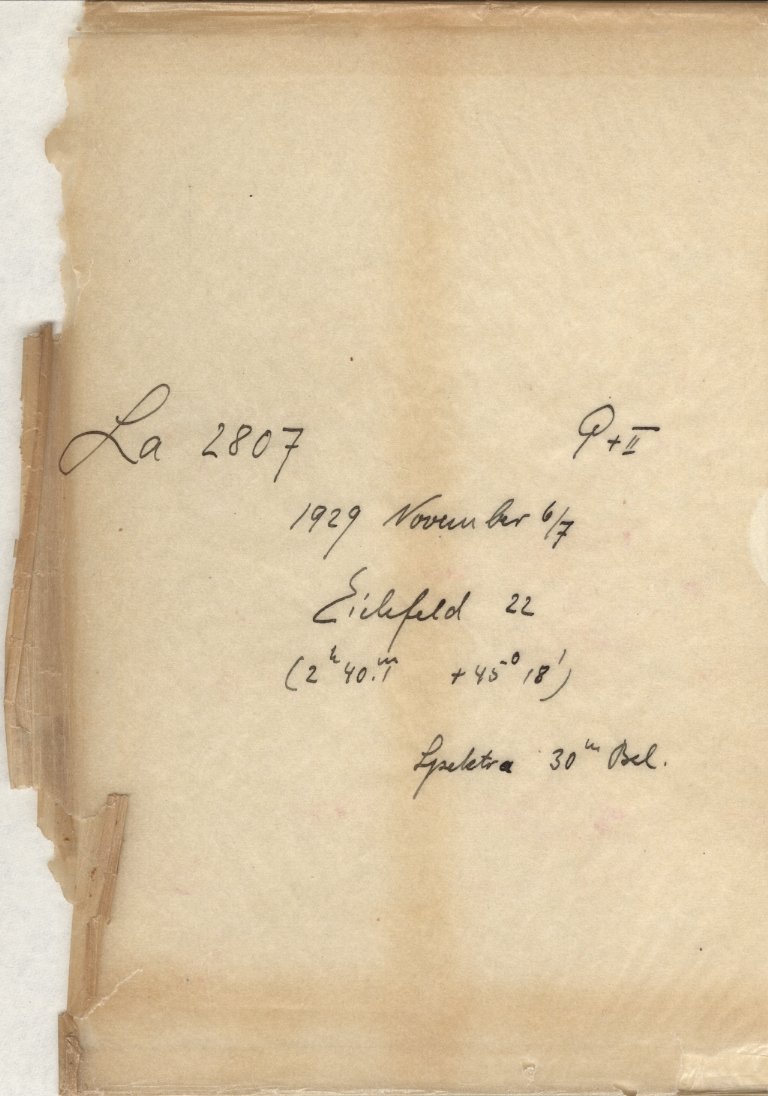 La 2807 P+II
1929 November 6/7
Eichfeld 22
(2ʰ 40.ᵐ1 +45° 18')
Spektra 30ᵐ Bel.